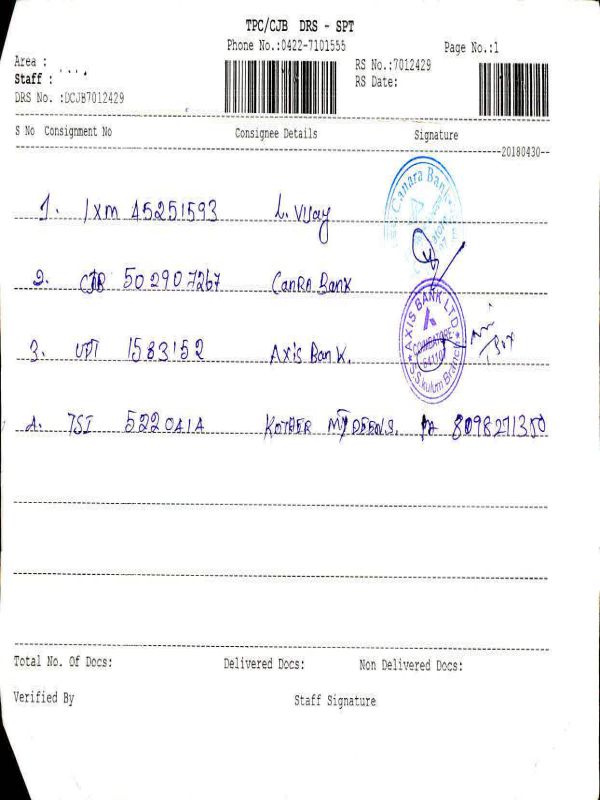 TPC/CJB DRS - SPT
Phone No.:0422-7101555 Page No.:1
Area : RS No.:7012429
Staff : RS Date:
DRS No. :DCJB7012429
S No Consignment No Consignee Details Signature
20180430--
1. IXM 45251593 L. Vijay
2. CJB 502907267 CanRA Bank
3. UPT 1583152 Axis Bank.
4. TSI 5220414 KOTHER MYDEEN S. 8098271350
Canara Bank
AXIS BANK LTD.
COIMBATORE
S.S.kulum Branch
Total No. Of Docs: Delivered Docs: Non Delivered Docs:
Verified By Staff Signature